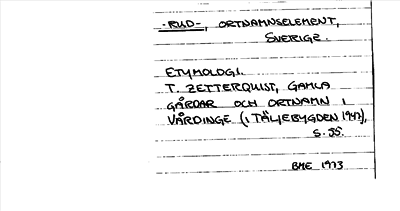 -RUD-, ORTNAMNSELEMENT,
SVERIGE.
ETYMOLOGI.
T. ZETTERQUIST, GAMLA
GÅRDAR OCH ORTNAMN I
VÅRDINGE (I TÄLJEBYGDEN 1947),
S. 55.
BME 1973